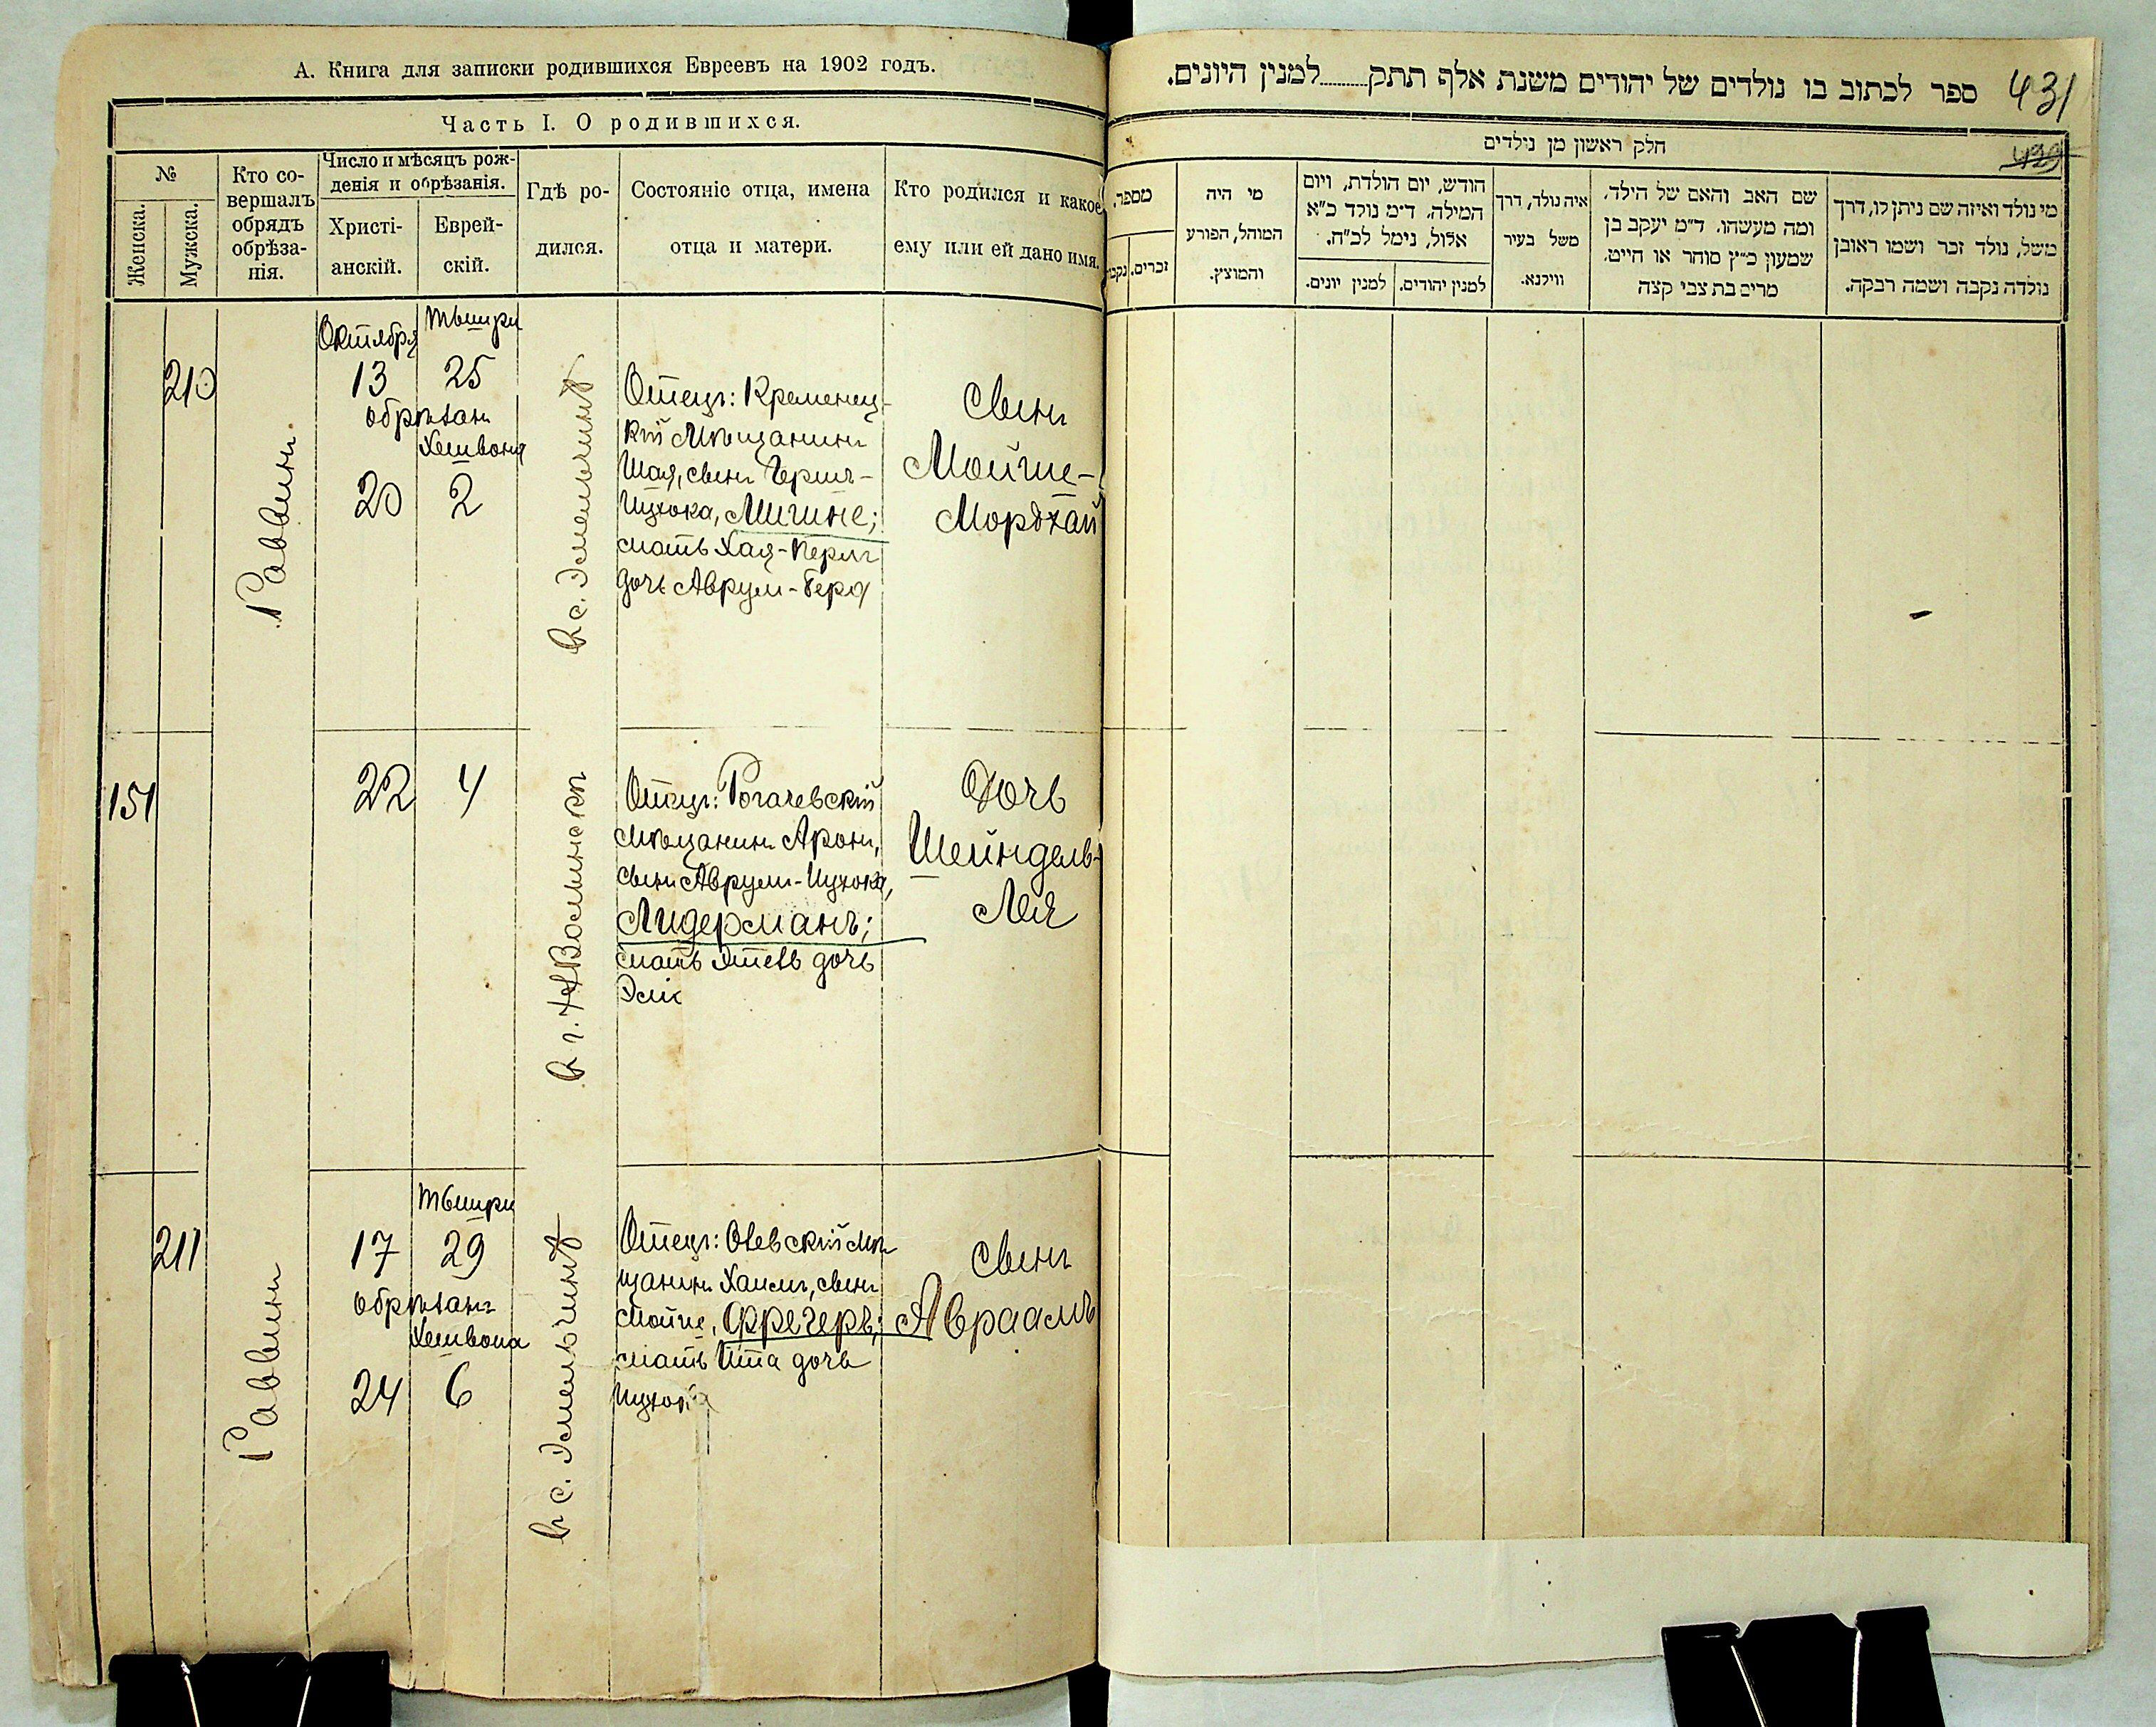 А. Книга для записки родившихся Евреевъ на 1902 годъ.
Часть I. О родившихся.
№
Женска.
Мужска.
Кто со-
вершалъ
обрядъ
обрѣза-
нія.
Число и мѣсяцъ рож-
денія и обрѣзанія.
Христі-
анскій.
Еврей-
скій.
Гдѣ ро-
дился.
Состояніе отца, имена
отца и матери.
Кто родился и какое
ему или ей дано имя.
210
Раввинъ
Октября
13
обрѣзанъ
20
Тышри
25
Хешвона
2
въ с. Эмельчинѣ
Отецъ: Кременец-
кій Мѣщанинъ
Шая, сынъ Гершъ-
Ицхока,
мать Хая-Перля
дочь Аврум-Бера
Сынъ
Мойше-
Мордхай
151
22
4
въ г. НВолынскъ
Отецъ: Рогачевскій
мѣщанинъ Аронъ,
сынъ Аврум-Ицхока,
Лидерманъ;
мать дочь
Сынъ
Дочь
Шейндель-
Лея
211
Раввинъ
17
обрѣзанъ
24
Тышри
29
Хешвона
6
въ с. Эмельчинѣ
Отецъ: Олевскій мѣ
щанинъ Хаимъ, сынъ
Мойше, Фречеръ;
мать Ита дочь
Ицхока
Сынъ
Авраамъ
431
429
ספר לכתוב בו נולדים של יהודים משנת אלף תתק..........למנין היונים.
חלק ראשון מן נולדים
מספר.
זכרים.
נקבו
מי היה
המוהל, הפורע
והמוצץ.
הודש, יום הולדת, ויום
המילה. ד״מ נולד כ״א
אלול, נימל לכ״ח.
למנין יונים.
למנין יהודים.
איה נולד, דרך
משל בעיר
ווילנא.
שם האב והאם של הילד,
ומה מעשהו. ד״מ יעקב בן
שמעון כ״ץ סוחר או חייט.
מרים בת צבי קצה
מי נולד ואיזה שם ניתן לו, דרך
משל, נולד זכר ושמו ראובן
נולדה נקבה ושמה רבקה.